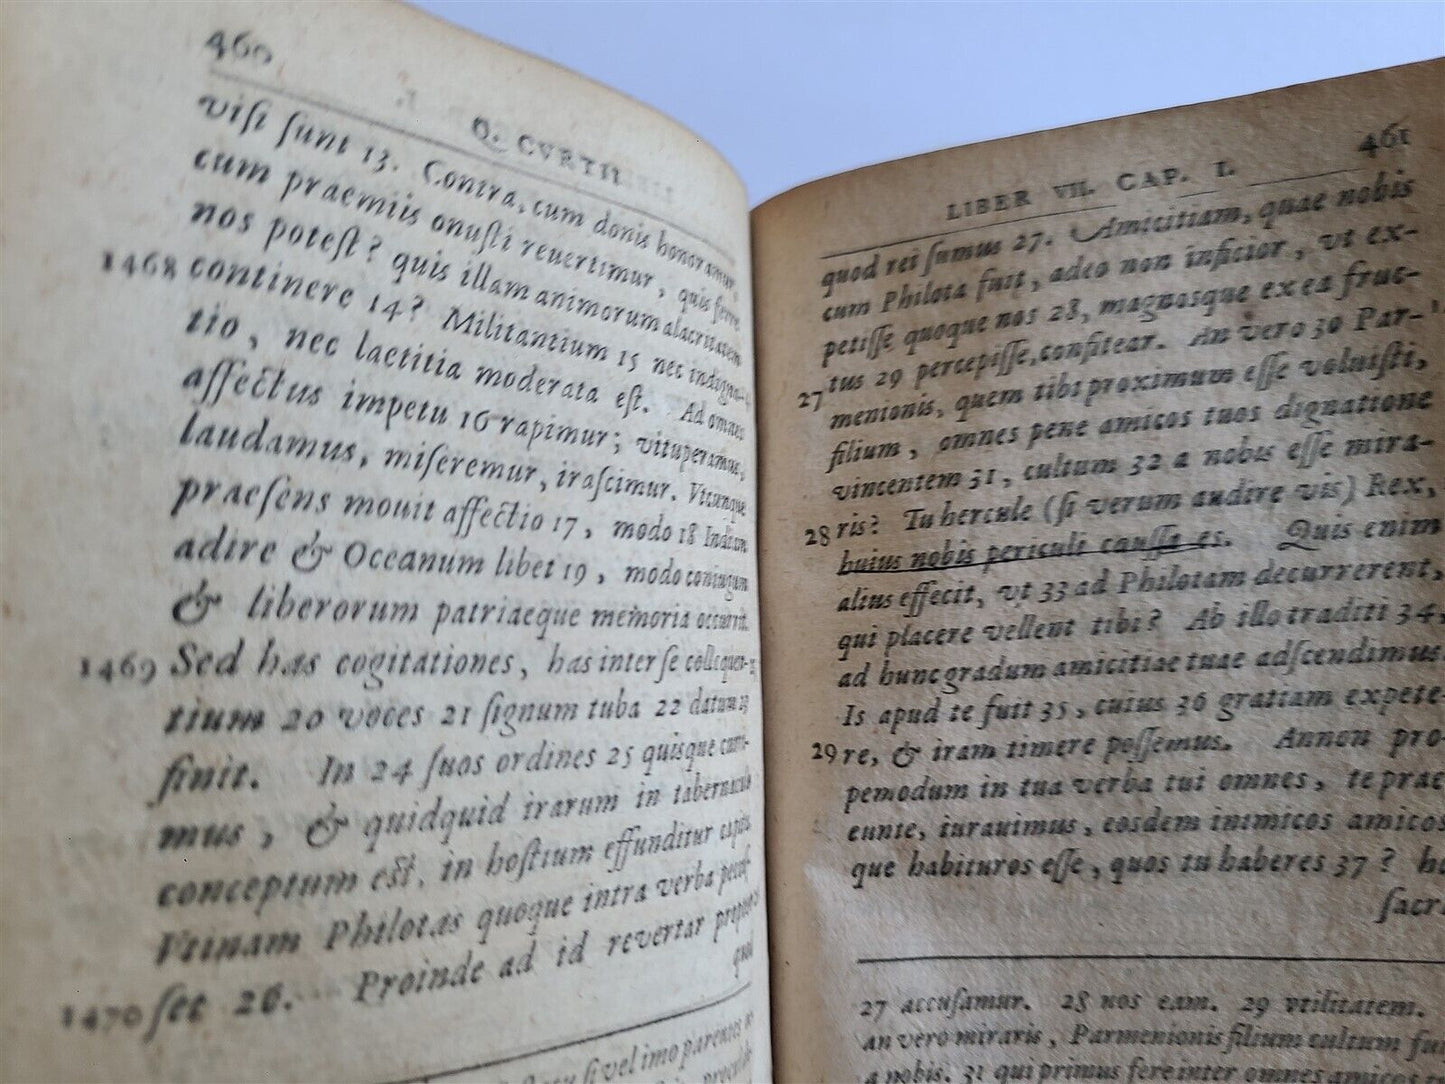 460
Q. CVRTII
viſi ſunt 13. Contra, cum donis honoramur,
cum praemiis onuſti reuertimur, quis ferre
nos poteſt? quis illam animorum alacritatem
1468 continere 14? Militantium 15 nec indigna-
tio, nec laetitia moderata eſt. Ad omnes
affectus impetu 16 rapimur; vituperamus,
laudamus, miſeremur, iraſcimur. Vtcunque
praeſens mouit affectio 17, modo 18 Indiam
adire & Oceanum libet 19, modo coniugum
& liberorum patriaeque memoria occurrit.
1469 Sed has cogitationes, has inter ſe colloquen-
tium 20 voces 21 ſignum tuba 22 datum 23
finit. In 24 ſuos ordines 25 quisque curri-
mus, & quidquid irarum in tabernaculo
conceptum eſt, in hoſtium effunditur capita.
Vtinam Philotas quoque intra verba peccaſ-
1470 ſet 26. Proinde ad id revertar propter
quod
ſi vel imo parentes
LIBER VII. CAP. I.
461
quod rei ſumus 27. Amicitiam, quae nobis
cum Philota fuit, adeo non inficior, vt ex-
petiſſe quoque nos 28, magnosque ex ea fruc-
27 tus 29 percepiſſe, confitear. An vero 30 Par-
menionis, quem tibi proximum eſſe voluiſti,
filium, omnes pene amicos tuos dignatione
vincentem 31, cultum 32 a nobis eſſe mira-
28 ris? Tu hercule (ſi verum audire vis) Rex,
huius nobis periculi cauſſa es. Quis enim
alius effecit, vt 33 ad Philotam decurrerent,
qui placere vellent tibi? Ab illo traditi 34,
ad hunc gradum amicitiae tuae adſcendimus.
Is apud te fuit 35, cuius 36 gratiam expete-
29 re, & iram timere poſſemus. Annon pro-
pemodum in tua verba tui omnes, te prae
eunte, iurauimus, eosdem inimicos amicos
que habituros eſſe, quos tu haberes 37? h
ſacr
27 accuſamur. 28 nos eam. 29 vtilitatem.
an vero miraris, Parmenionis filium cultum fu
a nobis. 31 qui primus fere inter omnes amicos